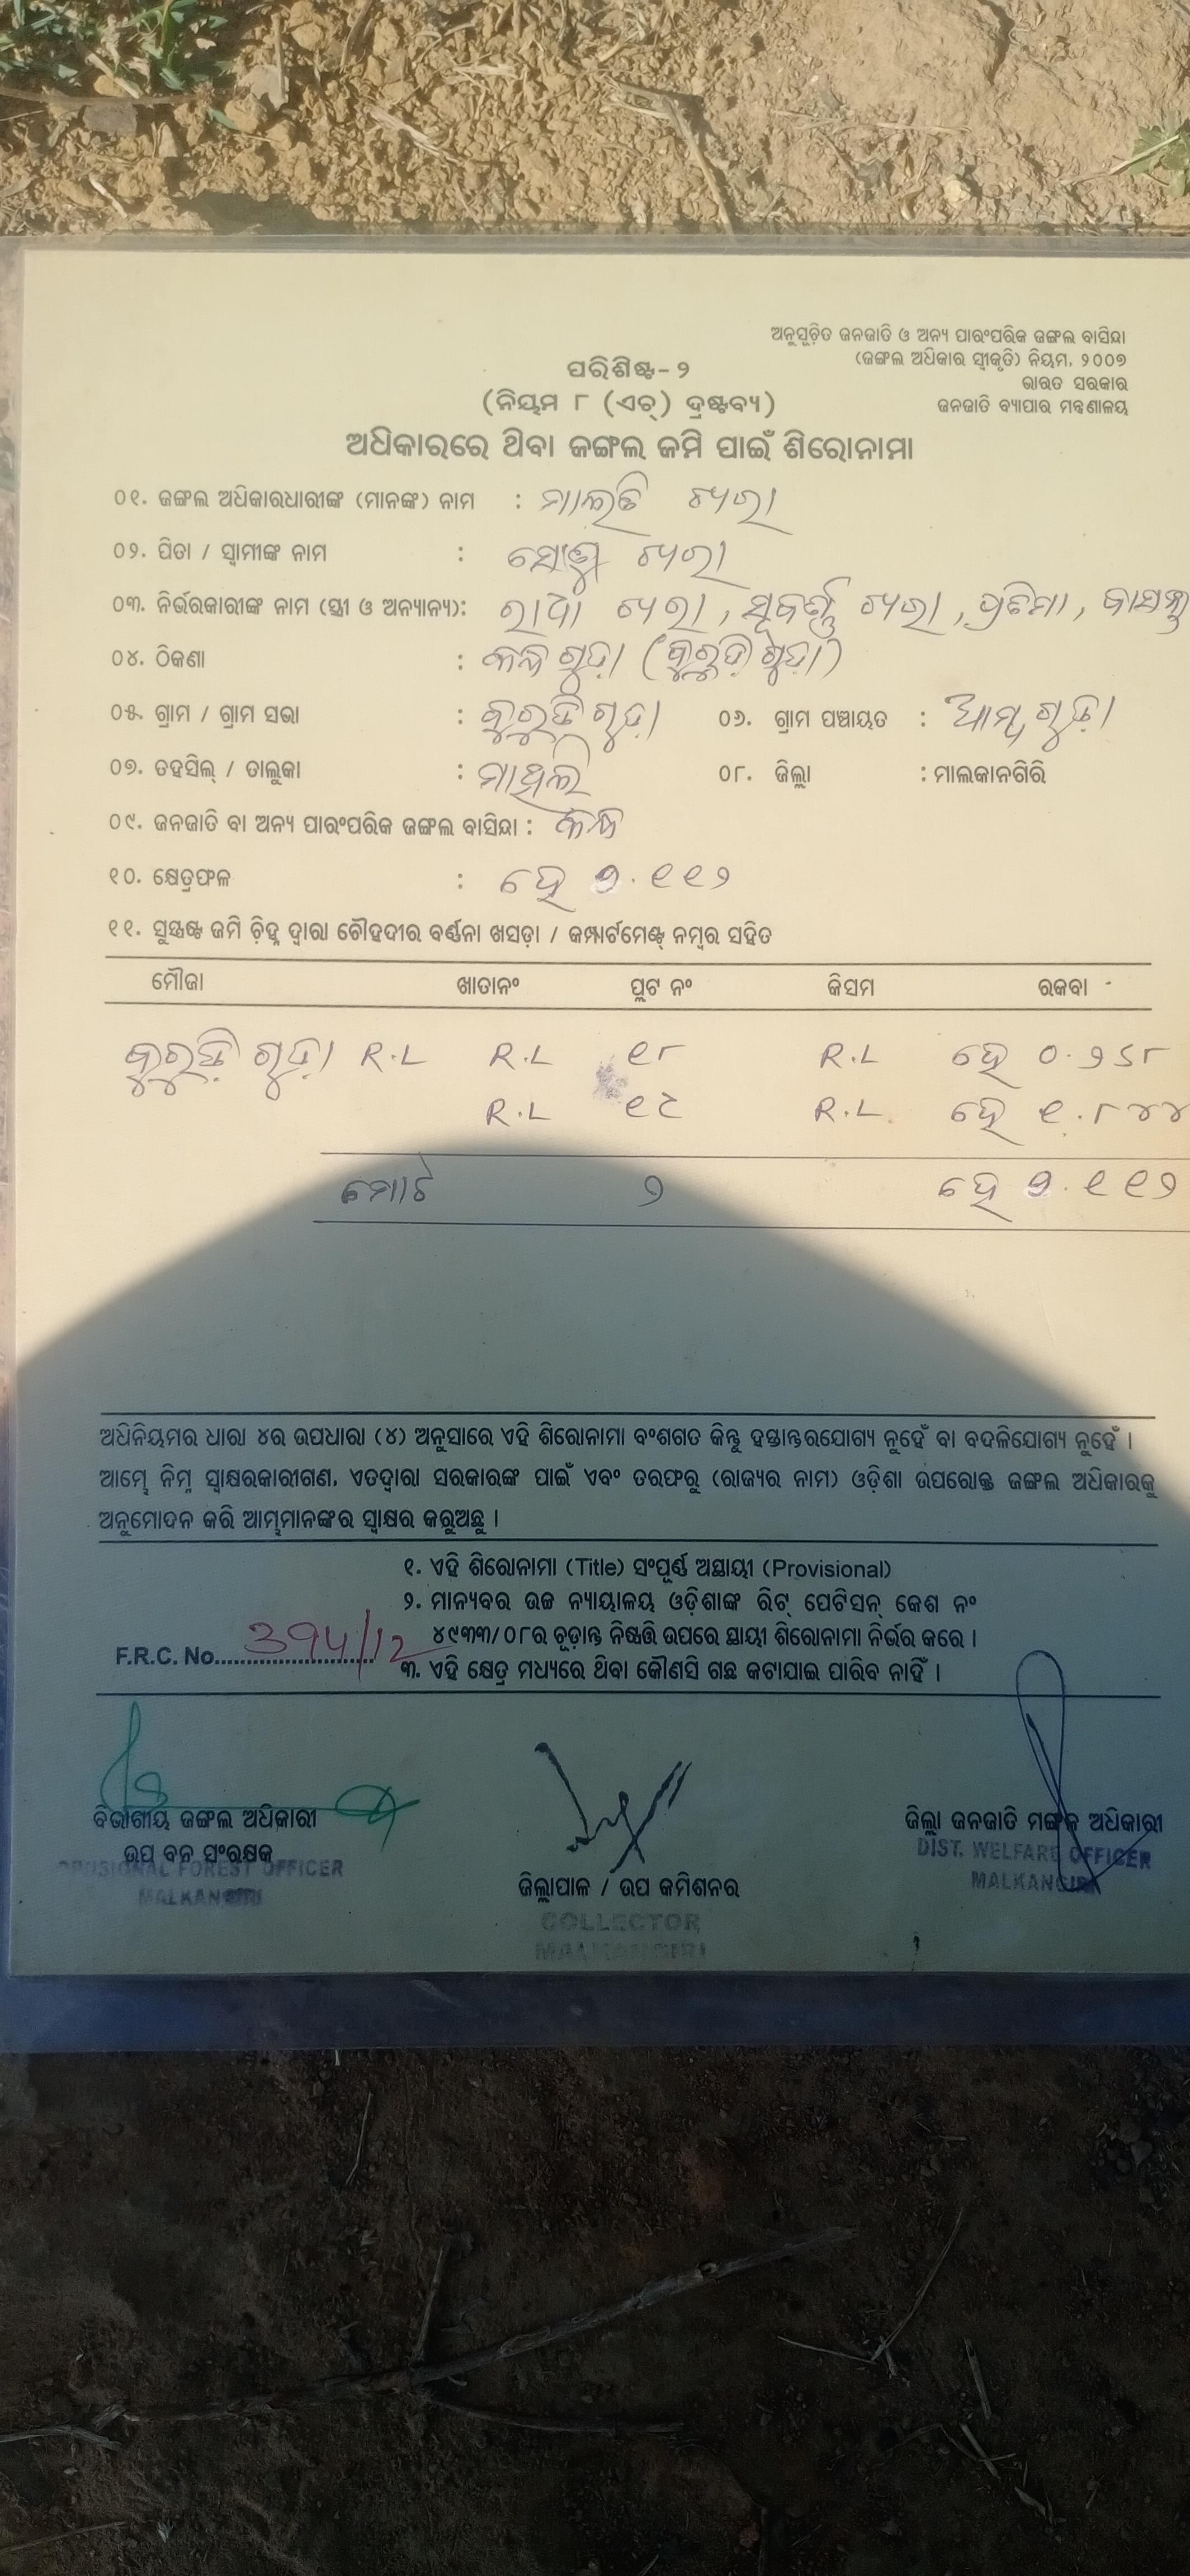 ଅନୁସୂଚିତ ଜନଜାତି ଓ ଅନ୍ୟ ପାରଂପରିକ ଜଙ୍ଗଲ ବାସିନ୍ଦା
(ଜଙ୍ଗଲ ଅଧିକାର ସ୍ୱୀକୃତି) ନିୟମ, ୨୦୦୭
ଭାରତ ସରକାର
ଜନଜାତି ବ୍ୟାପାର ମନ୍ତ୍ରଣାଳୟ
ପରିଶିଷ୍ଟ-୨
(ନିୟମ ୮ (ଏଚ୍) ଦ୍ରଷ୍ଟବ୍ୟ)
ଅଧିକାରରେ ଥିବା ଜଙ୍ଗଲ ଜମି ପାଇଁ ଶିରୋନାମା
୦୧. ଜଙ୍ଗଲ ଅଧିକାରଧାରୀଙ୍କ (ମାନଙ୍କ) ନାମ : ମାଲତି ଖରା
୦୨. ପିତା / ସ୍ୱାମୀଙ୍କ ନାମ : ଖରା
୦୩. ନିର୍ଭରକାରୀଙ୍କ ନାମ (ସ୍ତ୍ରୀ ଓ ଅନ୍ୟାନ୍ୟ): ରାଧା ଖରା, ସୂବର୍ଣ୍ଣ ଖରା, ପ୍ରତିମା,
୦୪. ଠିକଣା : (କୁରୁଡ଼ି ଗୁଡ଼ା)
୦୫. ଗ୍ରାମ / ଗ୍ରାମ ସଭା : କୁରୁଡ଼ି ଗୁଡ଼ା ୦୬. ଗ୍ରାମ ପଞ୍ଚାୟତ : ଆମ୍ବ ଗୁଡ଼ା
୦୭. ତହସିଲ୍ / ତାଲୁକା : ମାଥିଲି ୦୮. ଜିଲ୍ଲା : ମାଲକାନଗିରି
୦୯. ଜନଜାତି ବା ଅନ୍ୟ ପାରଂପରିକ ଜଙ୍ଗଲ ବାସିନ୍ଦା :
୧୦. କ୍ଷେତ୍ରଫଳ : ହେ ୨.୧୧୨
୧୧. ସୁସ୍ପଷ୍ଟ ଜମି ଚ଼ିହ୍ନ ଦ୍ୱାରା ଚୌହଦୀର ବର୍ଣ୍ଣନା ଖସଡ଼ା / କମ୍ପାର୍ଟମେଣ୍ଟ୍ ନମ୍ବର ସହିତ
ମୌଜା ଖାତାନଂ ପ୍ଲଟ ନଂ କିସମ ରକବା
କୁରୁଡ଼ି ଗୁଡ଼ା R.L R.L ୧୮ R.L ହେ ୦.୨୬୮
R.L ୧୯ R.L ହେ ୧.୮୪୪
ମୋଟ ୨ ହେ ୨.୧୧୨
ଅଧିନିୟମର ଧାରା ୪ର ଉପଧାରା (୪) ଅନୁସାରେ ଏହି ଶିରୋନାମା ବଂଶଗତ କିନ୍ତୁ ହସ୍ତାନ୍ତରଯୋଗ୍ୟ ନୁହେଁ ବା ବଦଳିଯୋଗ୍ୟ ନୁହେଁ ।
ଆମ୍ଭେ ନିମ୍ନ ସ୍ୱାକ୍ଷରକାରୀଗଣ, ଏତଦ୍ୱାରା ସରକାରଙ୍କ ପାଇଁ ଏବଂ ତରଫରୁ (ରାଜ୍ୟର ନାମ) ଓଡ଼ିଶା ଉପରୋକ୍ତ ଜଙ୍ଗଲ ଅଧିକାରକୁ
ଅନୁମୋଦନ କରି ଆମ୍ଭମାନଙ୍କର ସ୍ୱାକ୍ଷର କରୁଅଛୁ ।
୧. ଏହି ଶିରୋନାମା (Title) ସଂପୂର୍ଣ୍ଣ ଅସ୍ଥାୟୀ (Provisional)
୨. ମାନ୍ୟବର ଉଚ୍ଚ ନ୍ୟାୟାଳୟ ଓଡ଼ିଶାଙ୍କ ରିଟ୍ ପେଟିସନ୍ କେଶ ନଂ
୪୯୩୩/୦୮ର ଚୂଡ଼ାନ୍ତ ନିଷ୍ପତ୍ତି ଉପରେ ସ୍ଥାୟୀ ଶିରୋନାମା ନିର୍ଭର କରେ ।
F.R.C. No. 394/12
୩. ଏହି କ୍ଷେତ୍ର ମଧ୍ୟରେ ଥିବା କୌଣସି ଗଛ କଟାଯାଇ ପାରିବ ନାହିଁ ।
ବିଭାଗୀୟ ଜଙ୍ଗଲ ଅଧିକାରୀ
ଉପ ବନ ସଂରକ୍ଷକ
DIVISIONAL FOREST OFFICER
MALKANGIRI
ଜିଲ୍ଲାପାଳ / ଉପ କମିଶନର
COLLECTOR
MALKANGIRI
ଜିଲ୍ଲା ଜନଜାତି ମଙ୍ଗଳ ଅଧିକାରୀ
DIST. WELFARE OFFICER
MALKANGIRI